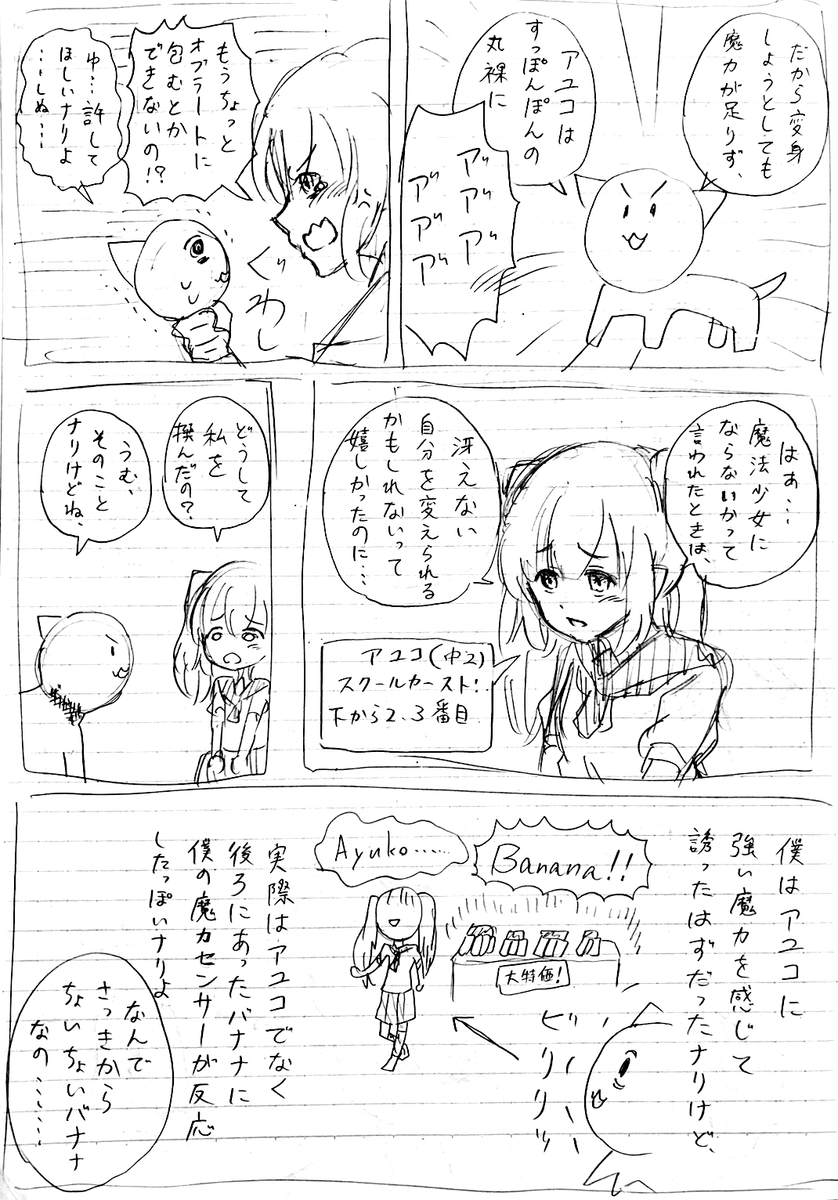 だから変身
しようとしても
魔力が足りず、
アユコは
すっぽんぽんの
丸裸に
アアア゛
アアア゛
もうちょっと
オブラートに
包むとか
できないの!?
ゆ…許して
ほしいナリよ
…しぬ…
ぐわし
はぁ…
魔法少女に
ならないかって
言われたときは、
冴えない
自分を変えられる
かもしれないって
嬉しかったのに…
アユコ(中2)
スクールカースト!
下から2、3番目
どうして
私を
撰んだの?
うむ、
そのこと
ナリけどね、
僕はアユコに
強い魔力を感じて
誘ったはずだったナリけど、
Banana!!
Ayuko……
大特価!
ビリリッ
実際はアユコでなく
後ろにあったバナナに
僕の魔力センサーが反応
したっぽいナリよ
なんで
さっきから
ちょいちょいバナナ
なの……